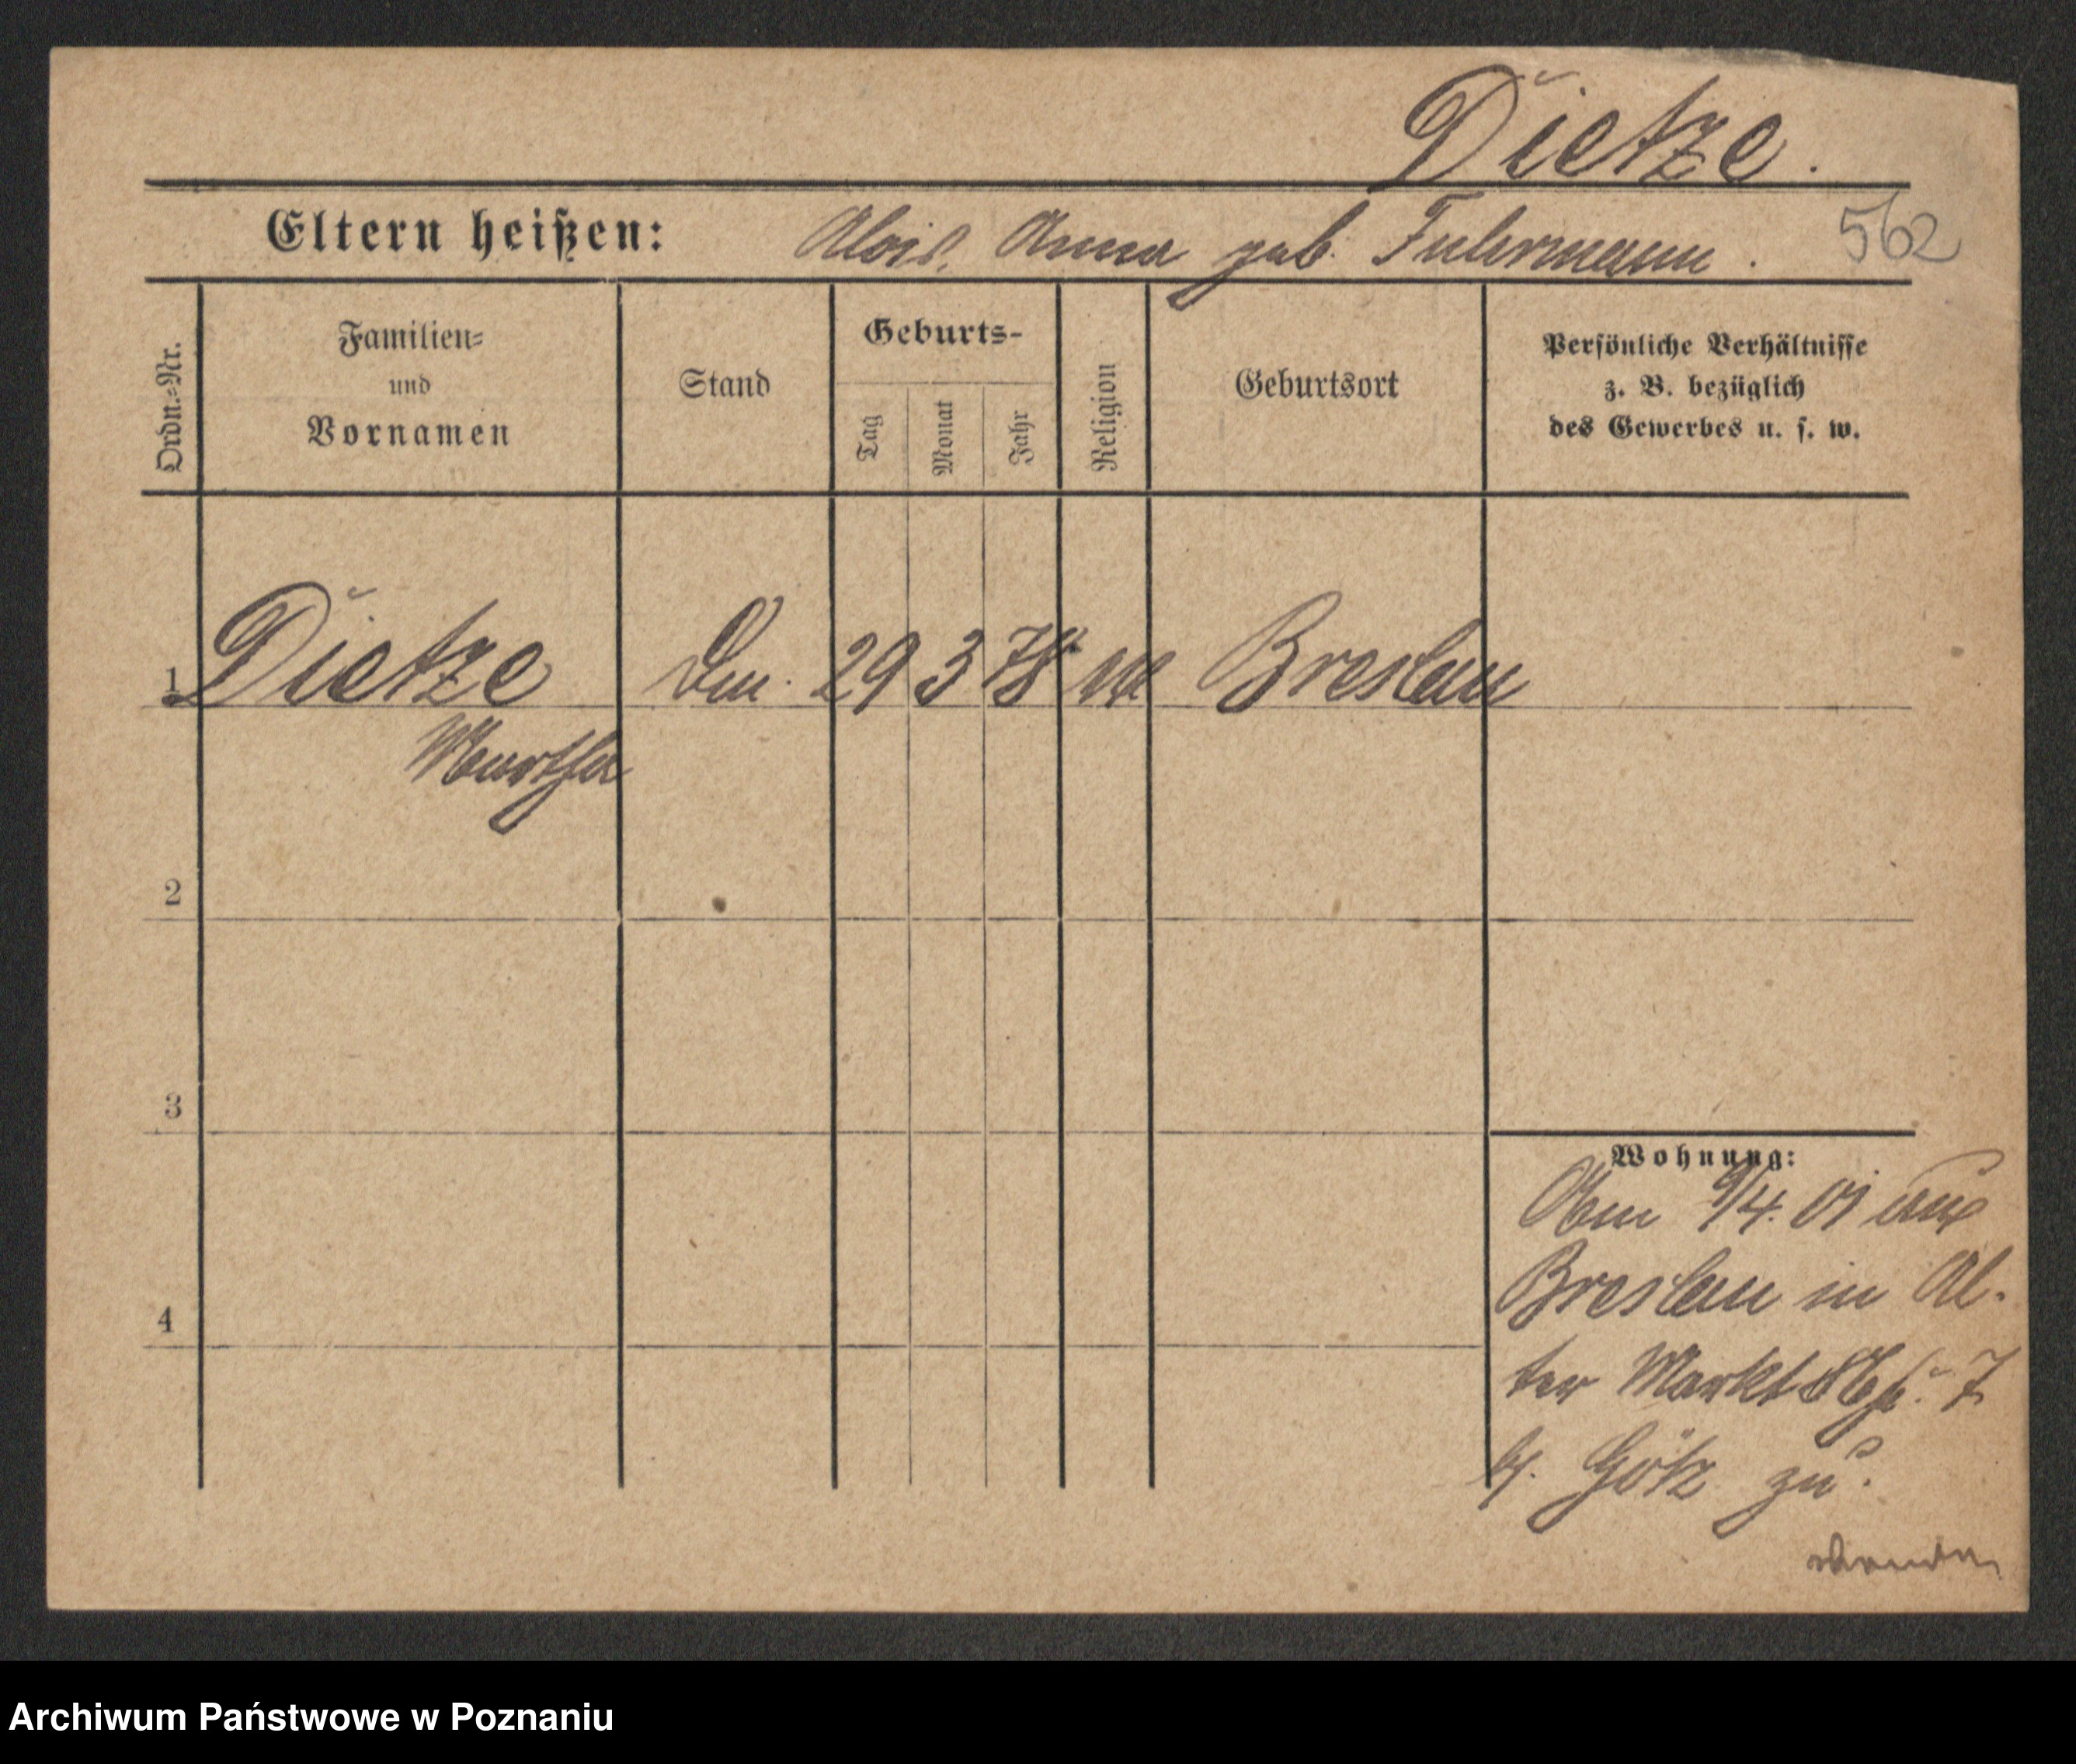 Dietze.
Eltern heißen: Alois, Anna geb. Fuhrmann. 562
Ordn.-Nr.
Familien-
und
Vornamen
Stand
Geburts-
Tag
Monat
Jahr
Religion
Geburtsort
Persönliche Verhältnisse
z. B. bezüglich
des Gewerbes u. s. w.
1 Dietze 29 3 78 Breslau
Martha
2
3
4
Wohnung:
Am 9/4. 01 aus
Breslau in Al-
ter Markt 7
b. Götz zu.
Archiwum Państwowe w Poznaniu